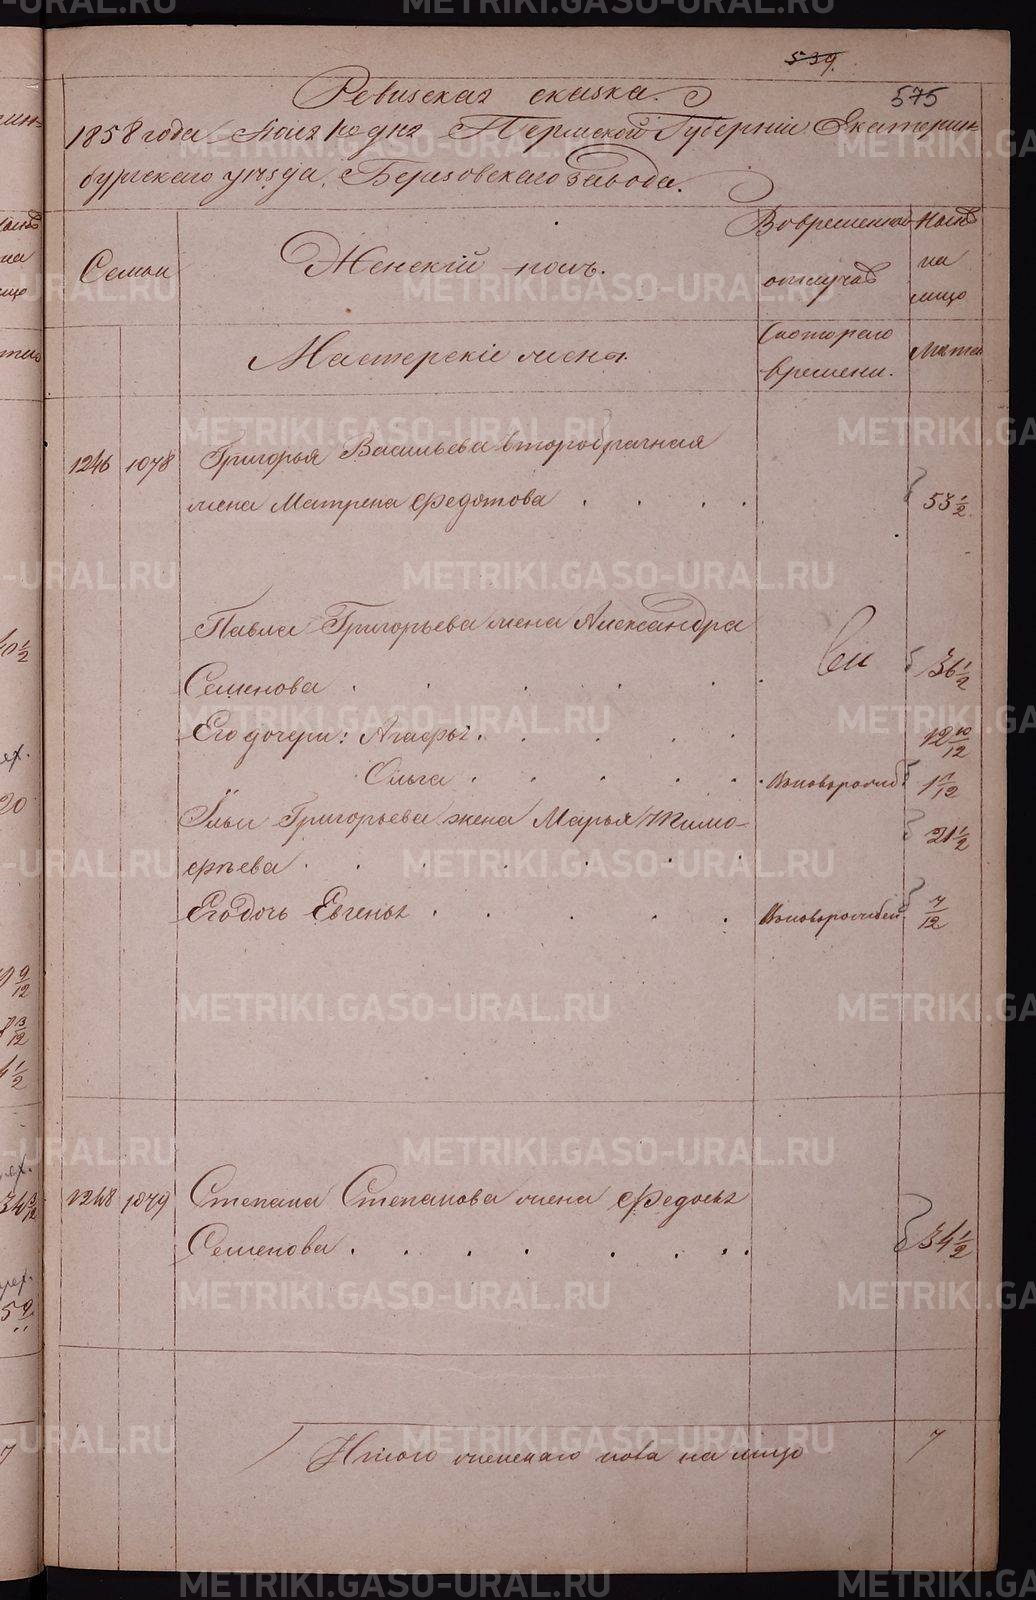 539.
575
Ревизская сказка.
1858 года Маія 1го дня Пермской Губерніи Екатерин-
бургскаго уѣзда, Березовскаго Завода.
Семьи
Женскій полъ.
Во временной
отлучкѣ
Нынѣ
на
лицо
Мастерскіе жены
Съ котораго
времени.
Лѣта
1246 1078 Григорья Васильева второбрачная
жена Матрена Федотова . . . . 53 1/2
Павла Григорьева жена Александра
Семенова . . . . . . 36 1/2
Его дочери: Агафья . . . . . 12 10/12
Ольга . . . . . . Новорожд. 1 7/12
Ильи Григорьева жена Марья Тимо-
фѣева . . . . . . . 21 1/2
Его дочь Евгенья . . . . . Новорожден. 7/12
1248 1079 Степана Степанова жена Федосья
Семенова . . . . . . . . 34 1/2
Итого женскаго пола на лицо 7
METRIKI.GASO-URAL.RU